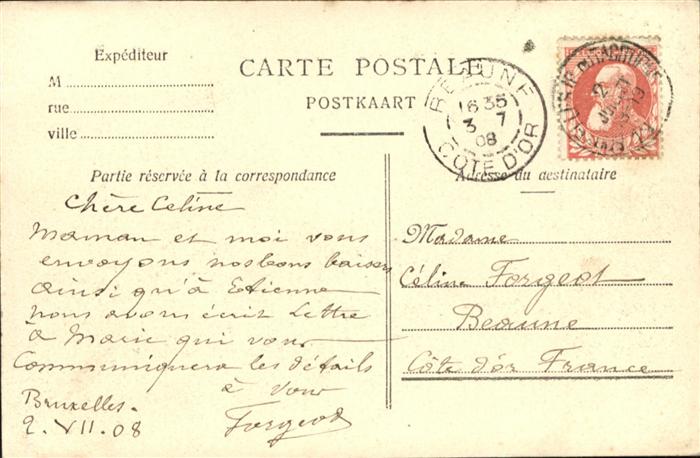 Expéditeur
M
rue
ville
CARTE POSTALE
POSTKAART
BEAUNE
16 35
3 7
08
COTE D'OR
Partie réservée à la correspondance
Adresse du destinataire
Chère Celine
Maman et moi vous
envoyons nos bons baisers
ainsi qu'à Etienne
nous avons écrit Lettre
à Marie qui vous
Communiquera les détails
à vous
Forgeot
Bruxelles.
2. VII. 08
Madame
Céline Forgeot
Beaune
Côte d'or France